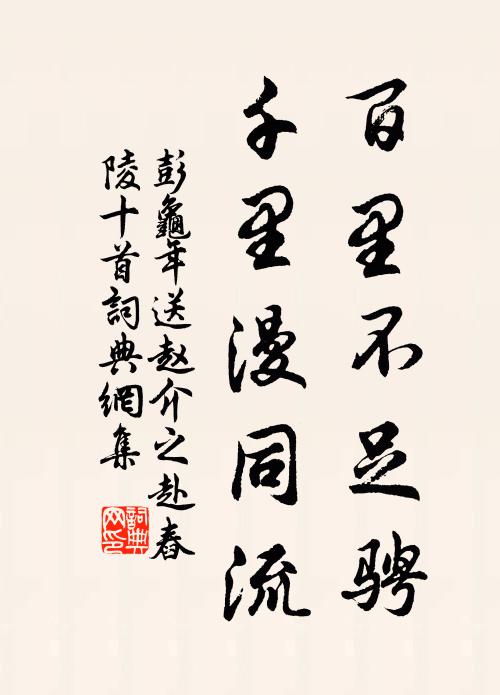 百里不足骋
千里漫同流
彭龜年送赵介之赴舂
陵十首詞典網集
詞典网印